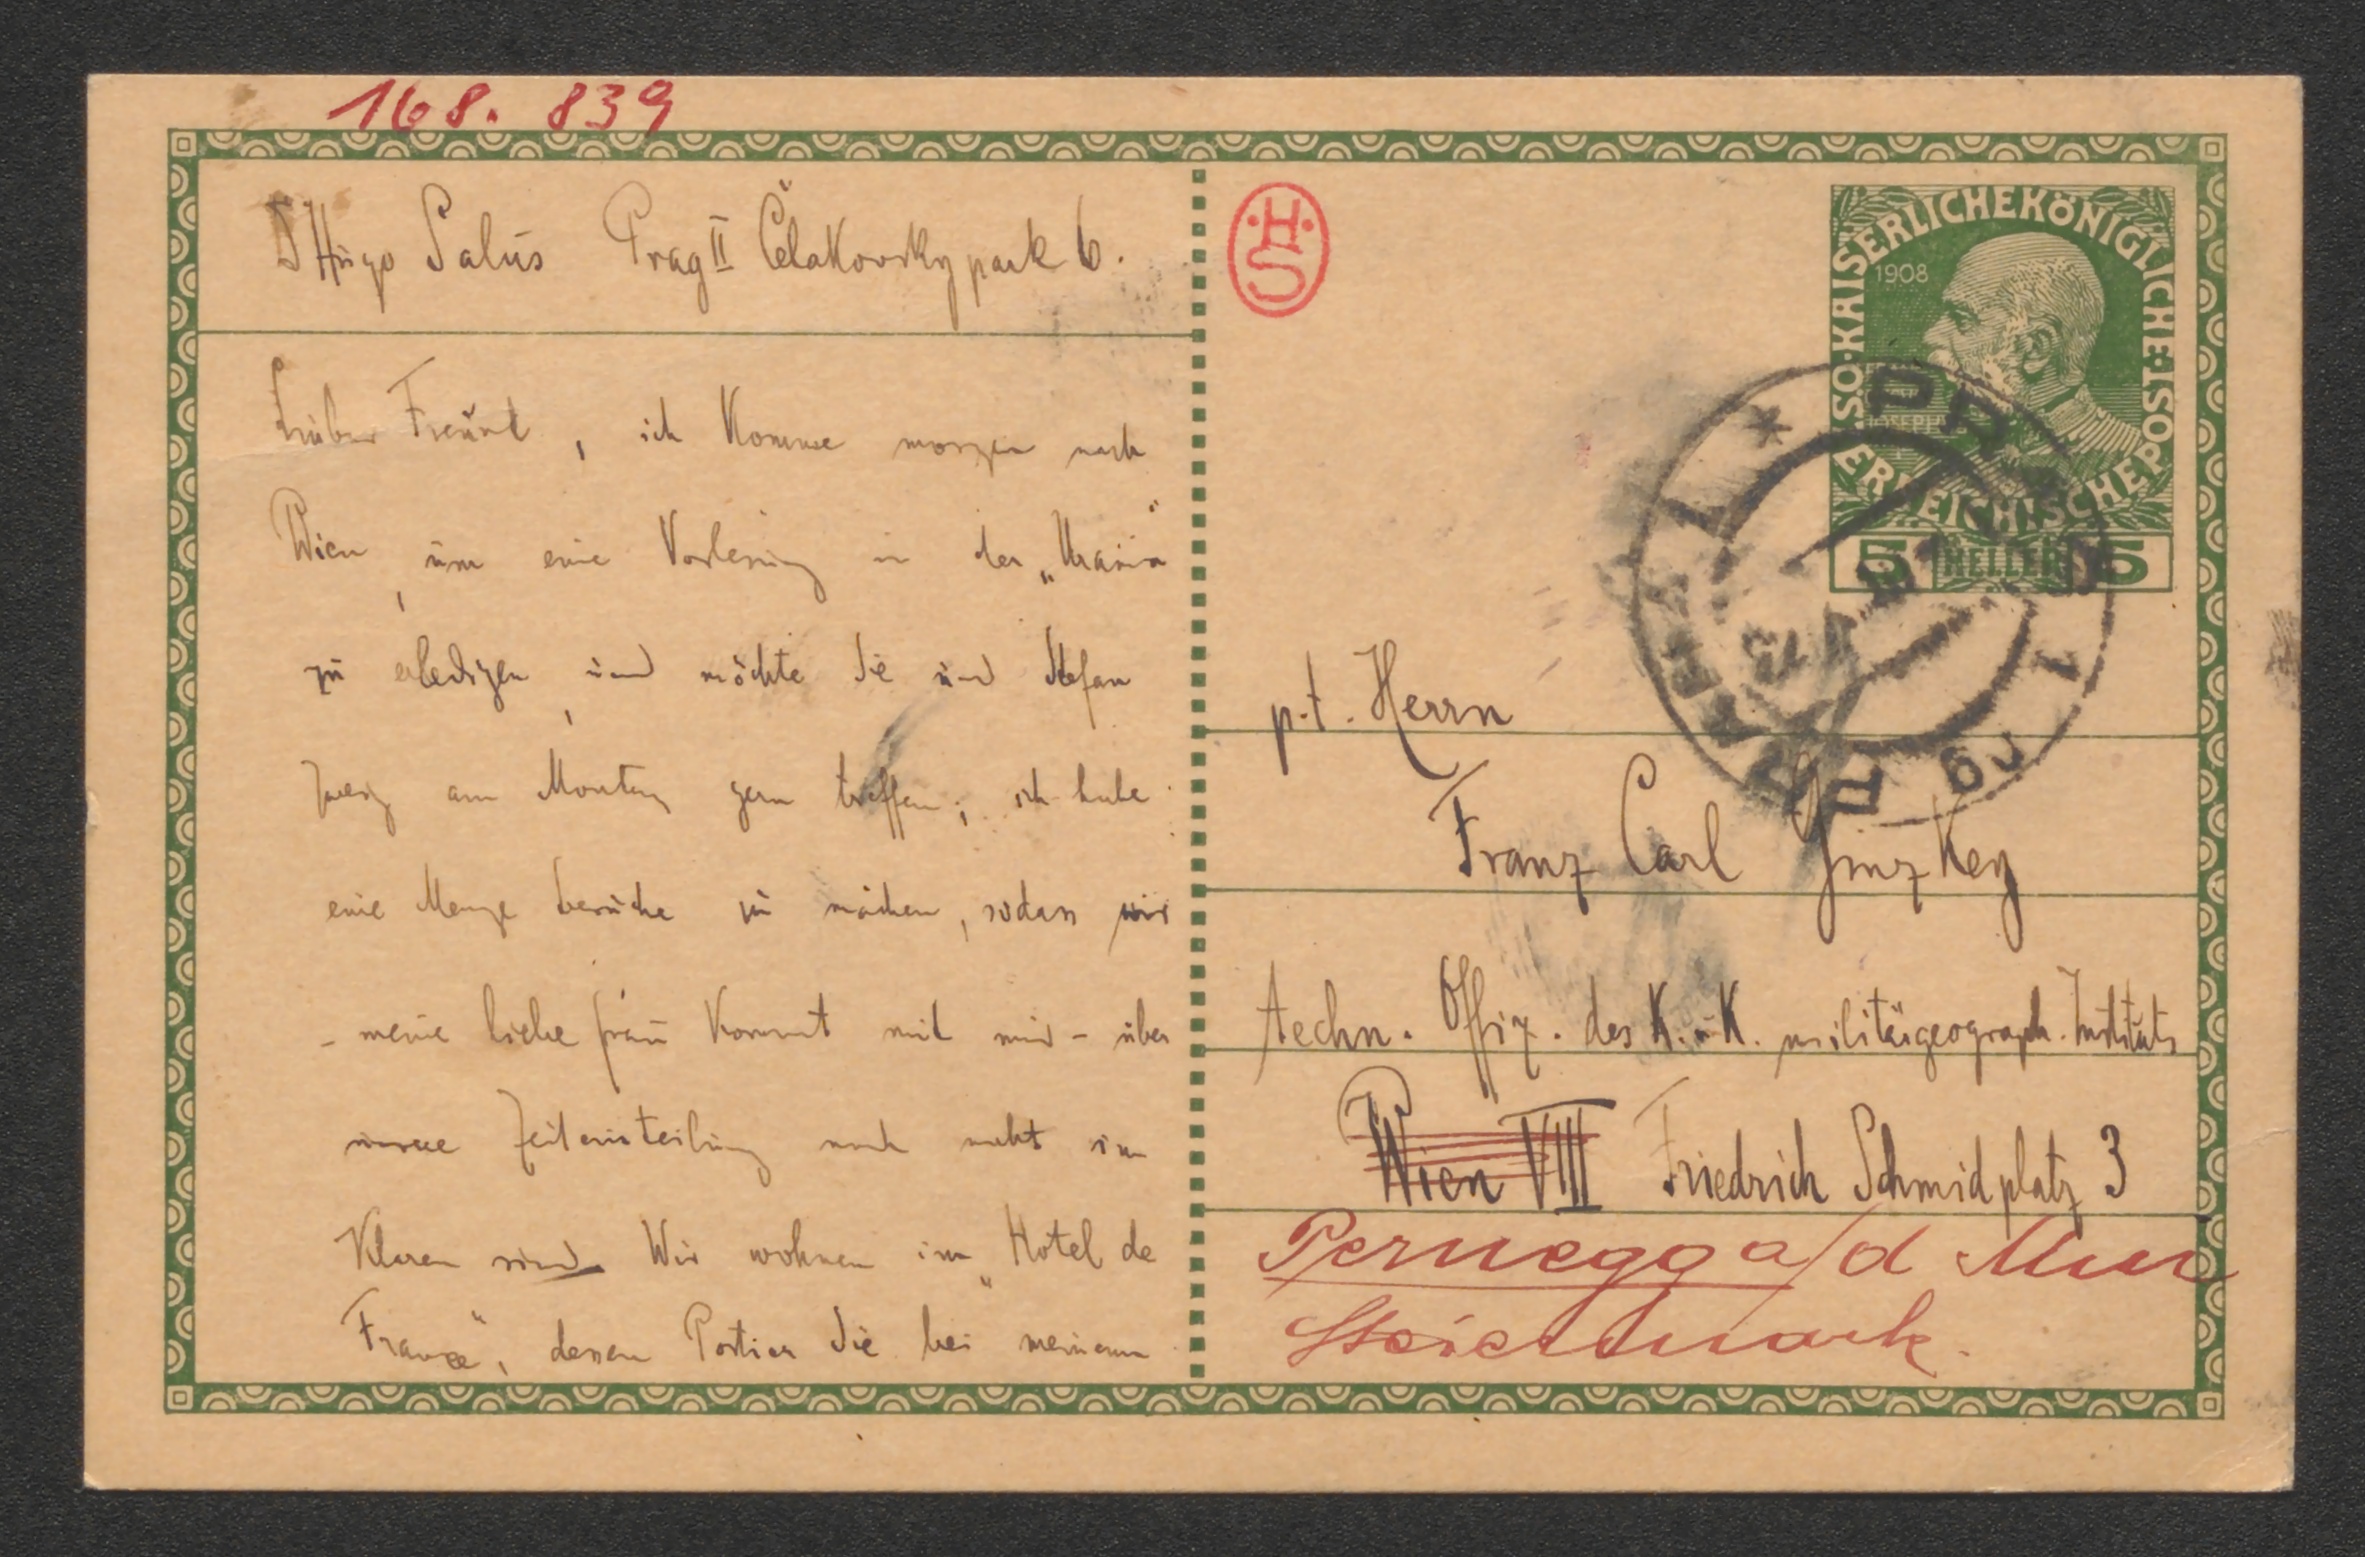 168. 839
D Hugo Salus Prag II Čelakovskypark 6.
Lieber Freund, ich komme morgen nach
Wien, um eine Vorlesung in der „Urania"
zu erledigen, und möchte Sie und Stefan
Zweig am Montag gern treffen; ich habe
eine Menge Besuche zu machen, sodass wir
- meine liebe Frau kommt mit mir - über
unsere Zeiteinteilung noch nicht im
Klaren sind. Wir wohnen im „Hotel de
France", dessen Portier Sie bei meinem
·H·
S
KAISERLICHE KÖNIGLICHE
ÖSTERREICHISCHE POST
1908
5 HELLER 5
PRAG
p.t. Herrn
Franz Carl Ginzkey
techn. Offiz. des K. u. K. militärgeograph. Instituts
Wien VIII Friedrich Schmidplatz 3
Pernegg a/d Mur
Steiermark.